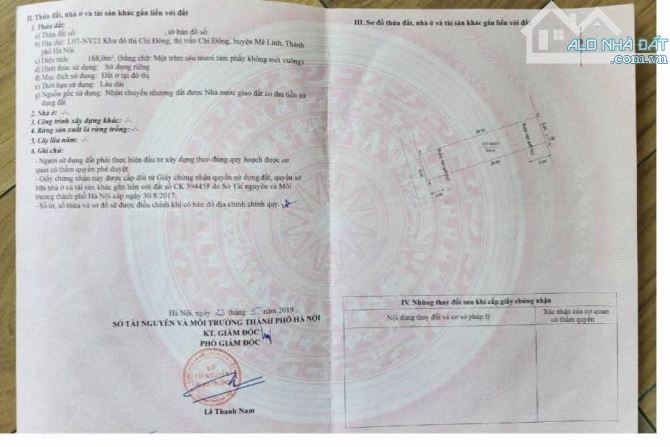 II. Thửa đất, nhà ở và tài sản khác gắn liền với đất
1. Thửa đất:
a) Thửa đất số: , tờ bản đồ số:
b) Địa chỉ: L07-NV21 Khu đô thị Chi Đông, thị trấn Chi Đông, huyện Mê Linh, Thành
phố Hà Nội
c) Diện tích: 168,0m², (bằng chữ: Một trăm sáu mươi tám phẩy không mét vuông)
d) Hình thức sử dụng: Sử dụng riêng
đ) Mục đích sử dụng: Đất ở tại đô thị
e) Thời hạn sử dụng: Lâu dài
g) Nguồn gốc sử dụng: Nhận chuyển nhượng đất được Nhà nước giao đất có thu tiền sử
dụng đất
2. Nhà ở: -/-
3. Công trình xây dựng khác: -/-
4. Rừng sản xuất là rừng trồng: -/-
5. Cây lâu năm: -/-
6. Ghi chú:
- Người sử dụng đất phải thực hiện đầu tư xây dựng theo đúng quy hoạch được cơ
quan có thẩm quyền phê duyệt
- Giấy chứng nhận này được cấp đổi từ Giấy chứng nhận quyền sử dụng đất, quyền sở
hữu nhà ở và tài sản khác gắn liền với đất số CK 394458 do Sở Tài nguyên và Môi
trường thành phố Hà Nội cấp ngày 30/8/2017.
- Số tờ, số thửa và sơ đồ sẽ được điều chỉnh khi có bản đồ địa chính chính quy.
Hà Nội, ngày tháng 5 năm 2019
SỞ TÀI NGUYÊN VÀ MÔI TRƯỜNG THÀNH PHỐ HÀ NỘI
KT. GIÁM ĐỐC
PHÓ GIÁM ĐỐC
SỞ
TÀI NGUYÊN
Lê Thanh Nam
III. Sơ đồ thửa đất, nhà ở và tài sản khác gắn liền với đất
ALO NHÀ ĐẤT
IV. Những thay đổi sau khi cấp giấy chứng nhận
Nội dung thay đổi và cơ sở pháp lý
Xác nhận của cơ quan
có thẩm quyền